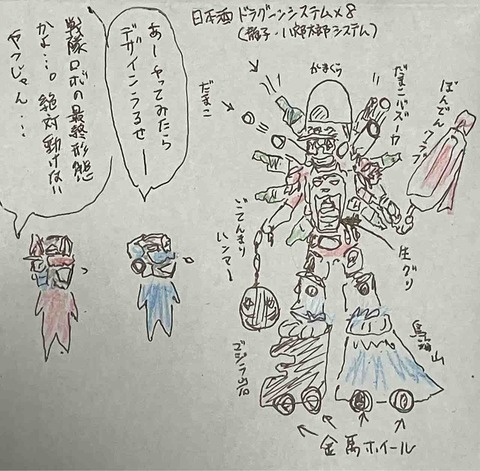 日本酒ドラグーンシステム×8
(鞘子・小郎太郎システム)
かまくら
だまこ
だまこバズーカ
ばんでん
クラブ
ごてんまり
ハンマー
生グリ
ゴジラ岩
鳥海山
金馬ホイール
あーやってみたら
デザインうるせー
戦隊ロボの最終形態
かよ…。絶対動けない
ヤツじゃん…